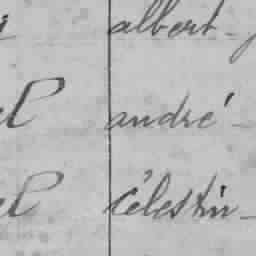 albert
andré
Célestin